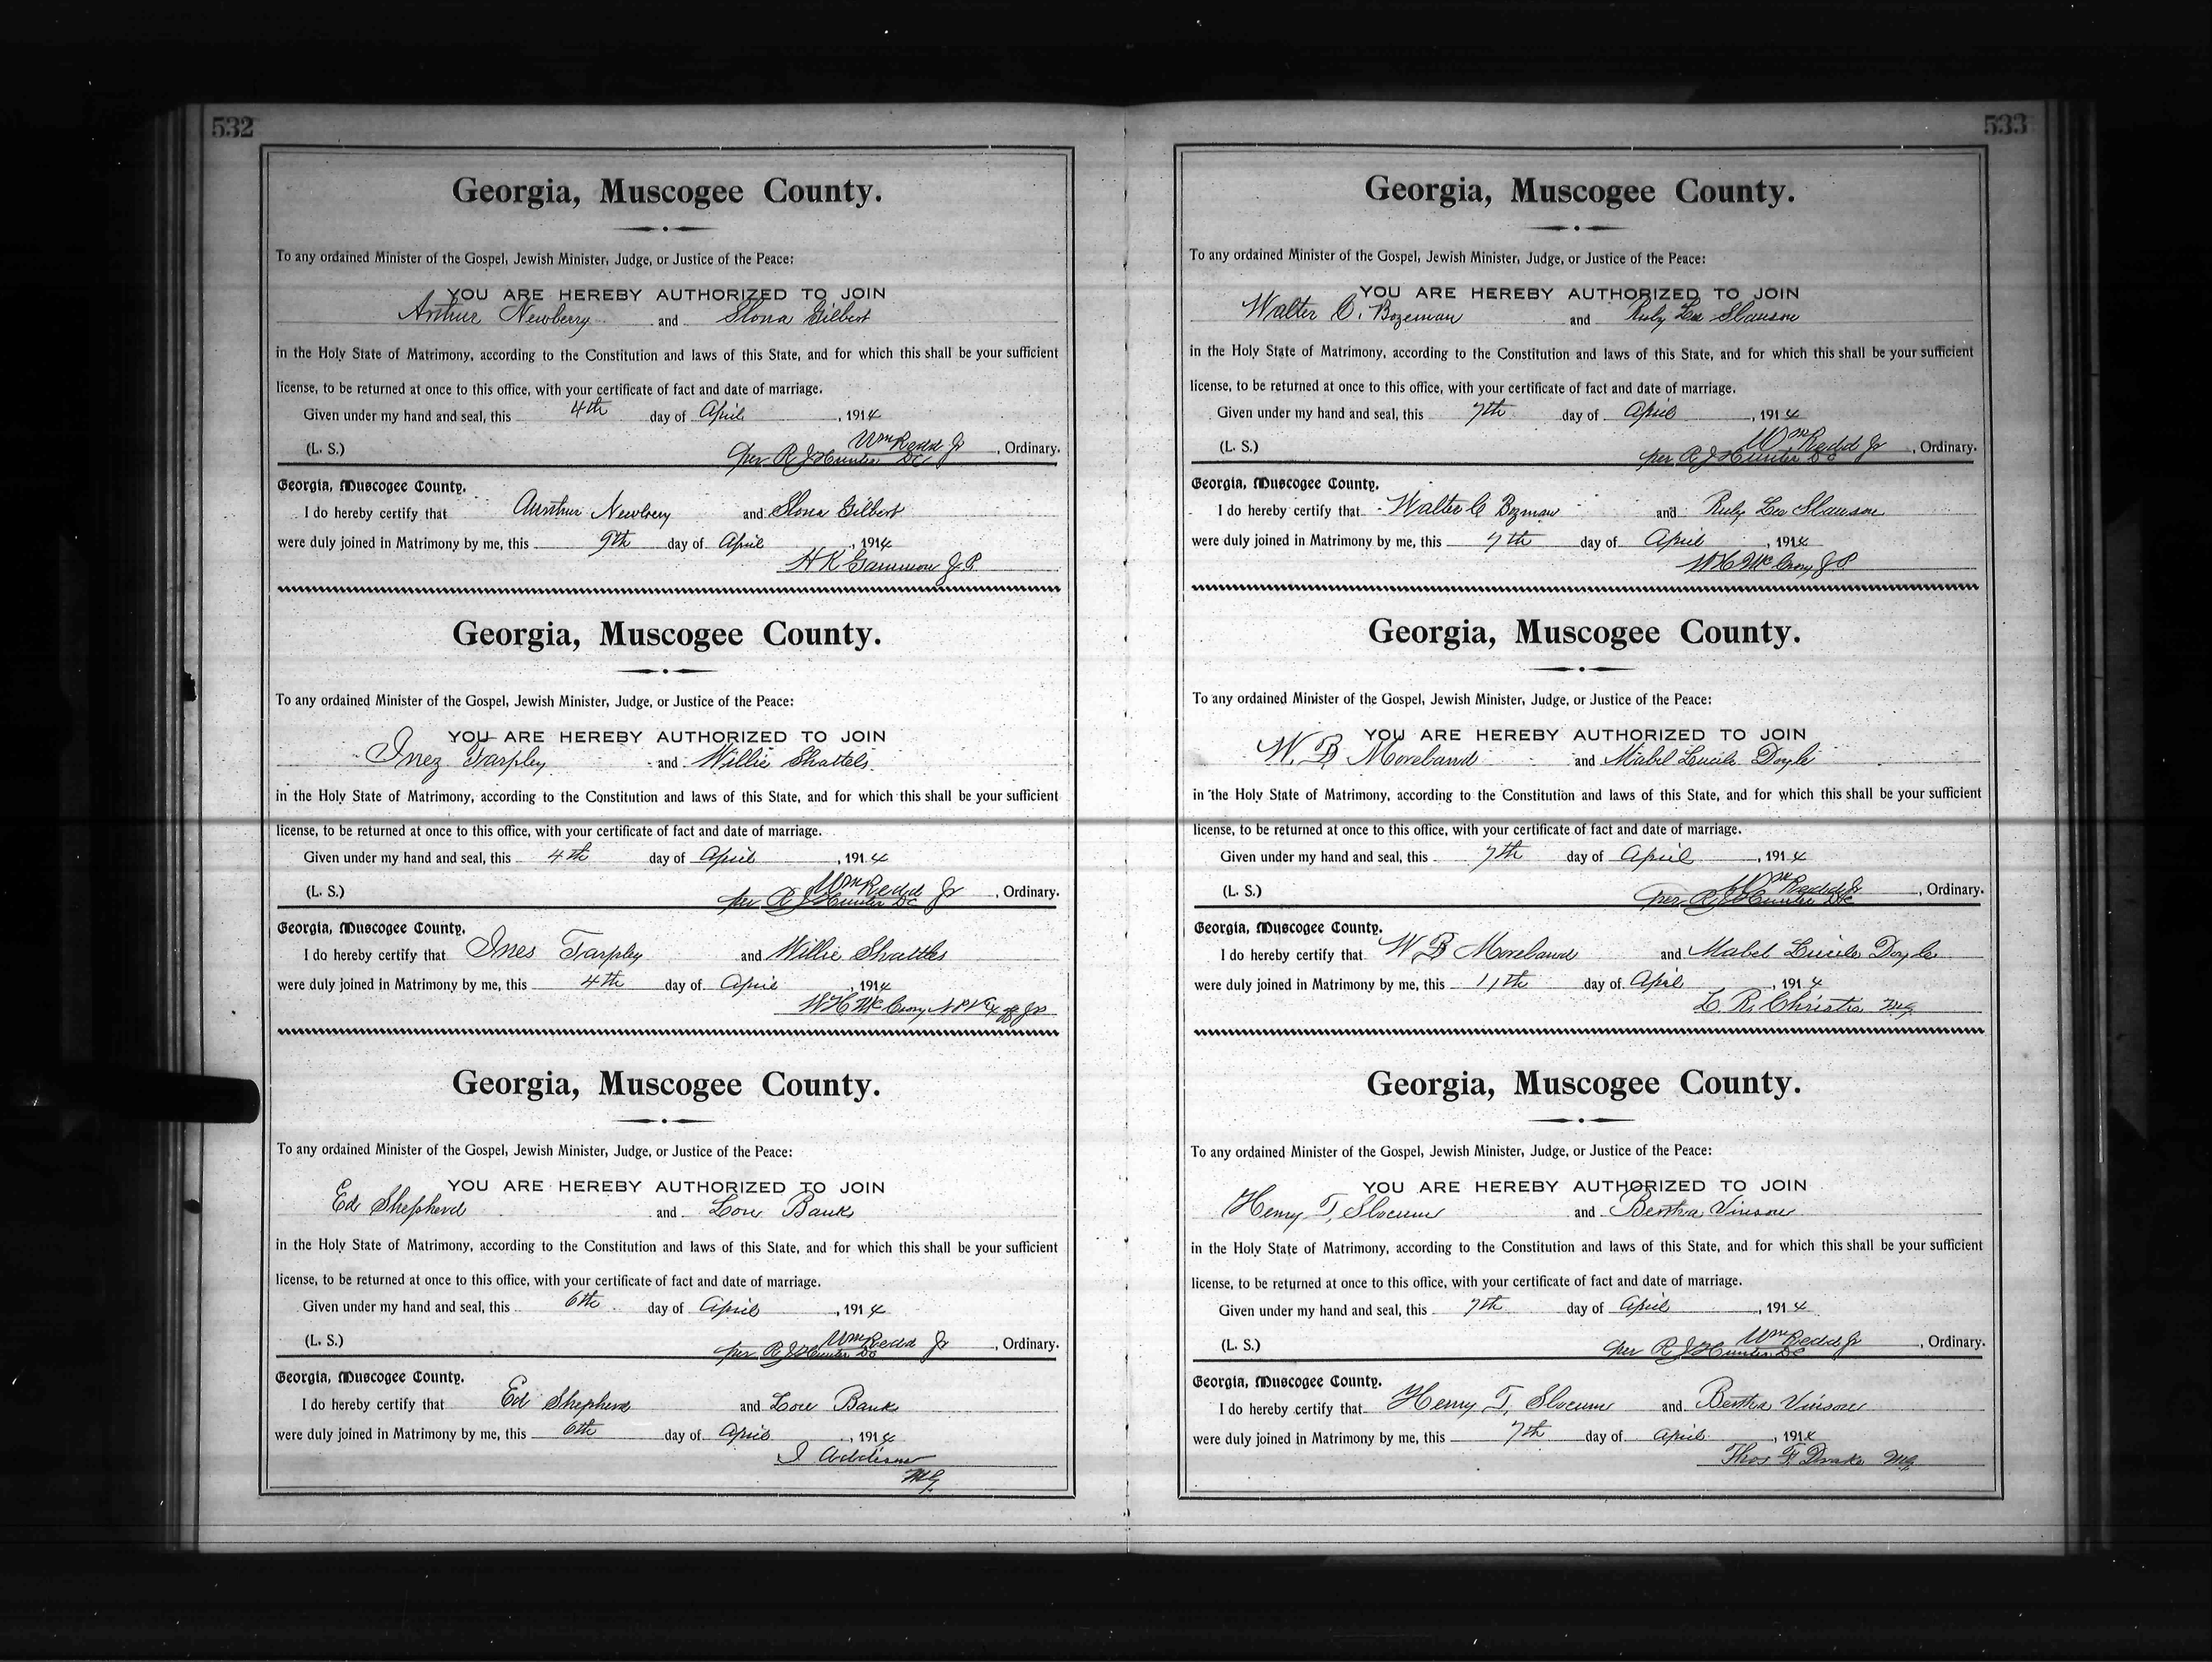 532
Georgia, Muscogee County.
To any ordained Minister of the Gospel, Jewish Minister, Judge, or Justice of the Peace:
YOU ARE HEREBY AUTHORIZED TO JOIN
Arthur Newberry and Slona Gilbert
in the Holy State of Matrimony, according to the Constitution and laws of this State, and for which this shall be your sufficient
license, to be returned at once to this office, with your certificate of fact and date of marriage.
Given under my hand and seal, this 4th day of April, 1914
(L. S.) Wm Redd Jr, Ordinary.
per R J Hunter DC
Georgia, Muscogee County.
I do hereby certify that Aurthur Newbery and Slona Gilbert
were duly joined in Matrimony by me, this 9th day of April, 1914
H K Gammon J.P.
Georgia, Muscogee County.
To any ordained Minister of the Gospel, Jewish Minister, Judge, or Justice of the Peace:
YOU ARE HEREBY AUTHORIZED TO JOIN
Inez Tarpley and Willie Shattels
in the Holy State of Matrimony, according to the Constitution and laws of this State, and for which this shall be your sufficient
license, to be returned at once to this office, with your certificate of fact and date of marriage.
Given under my hand and seal, this 4th day of April, 1914
(L. S.) Wm Redd Jr, Ordinary.
per R J Hunter DC
Georgia, Muscogee County.
I do hereby certify that Ines Tarpley and Willie Shattles
were duly joined in Matrimony by me, this 4th day of April, 1914
W H McCrory N P & Ex off JP
Georgia, Muscogee County.
To any ordained Minister of the Gospel, Jewish Minister, Judge, or Justice of the Peace:
YOU ARE HEREBY AUTHORIZED TO JOIN
Ed Shepherd and Lou Banks
in the Holy State of Matrimony, according to the Constitution and laws of this State, and for which this shall be your sufficient
license, to be returned at once to this office, with your certificate of fact and date of marriage.
Given under my hand and seal, this 6th day of April, 1914
(L. S.) Wm Redd Jr, Ordinary.
per R J Hunter DC
Georgia, Muscogee County.
I do hereby certify that Ed Shepherd and Lou Banks
were duly joined in Matrimony by me, this 6th day of April, 1914
I Addison
MG
533
Georgia, Muscogee County.
To any ordained Minister of the Gospel, Jewish Minister, Judge, or Justice of the Peace:
YOU ARE HEREBY AUTHORIZED TO JOIN
Walter C. Bozeman and Ruby Lee Slauson
in the Holy State of Matrimony, according to the Constitution and laws of this State, and for which this shall be your sufficient
license, to be returned at once to this office, with your certificate of fact and date of marriage.
Given under my hand and seal, this 7th day of April, 1914
(L. S.) Wm Redd Jr, Ordinary.
per R J Hunter DC
Georgia, Muscogee County.
I do hereby certify that Walter C Bozman and Ruby Lee Slauson
were duly joined in Matrimony by me, this 7th day of April, 1914
W H McCrory J P
Georgia, Muscogee County.
To any ordained Minister of the Gospel, Jewish Minister, Judge, or Justice of the Peace:
YOU ARE HEREBY AUTHORIZED TO JOIN
W. B. Moreland and Mabel Lucile Doyle
in the Holy State of Matrimony, according to the Constitution and laws of this State, and for which this shall be your sufficient
license, to be returned at once to this office, with your certificate of fact and date of marriage.
Given under my hand and seal, this 7th day of April, 1914
(L. S.) Wm Redd Jr, Ordinary.
per R J Hunter DC
Georgia, Muscogee County.
I do hereby certify that W B Moreland and Mabel Lucile Doyle
were duly joined in Matrimony by me, this 11th day of April, 1914
L. R. Christie MG
Georgia, Muscogee County.
To any ordained Minister of the Gospel, Jewish Minister, Judge, or Justice of the Peace:
YOU ARE HEREBY AUTHORIZED TO JOIN
Henry T. Slocum and Bertha Vinson
in the Holy State of Matrimony, according to the Constitution and laws of this State, and for which this shall be your sufficient
license, to be returned at once to this office, with your certificate of fact and date of marriage.
Given under my hand and seal, this 7th day of April, 1914
(L. S.) Wm Redd Jr, Ordinary.
per R J Hunter DC
Georgia, Muscogee County.
I do hereby certify that Henry T. Slocum and Bertha Vinson
were duly joined in Matrimony by me, this 7th day of April, 1914
Thos F. Drake MG